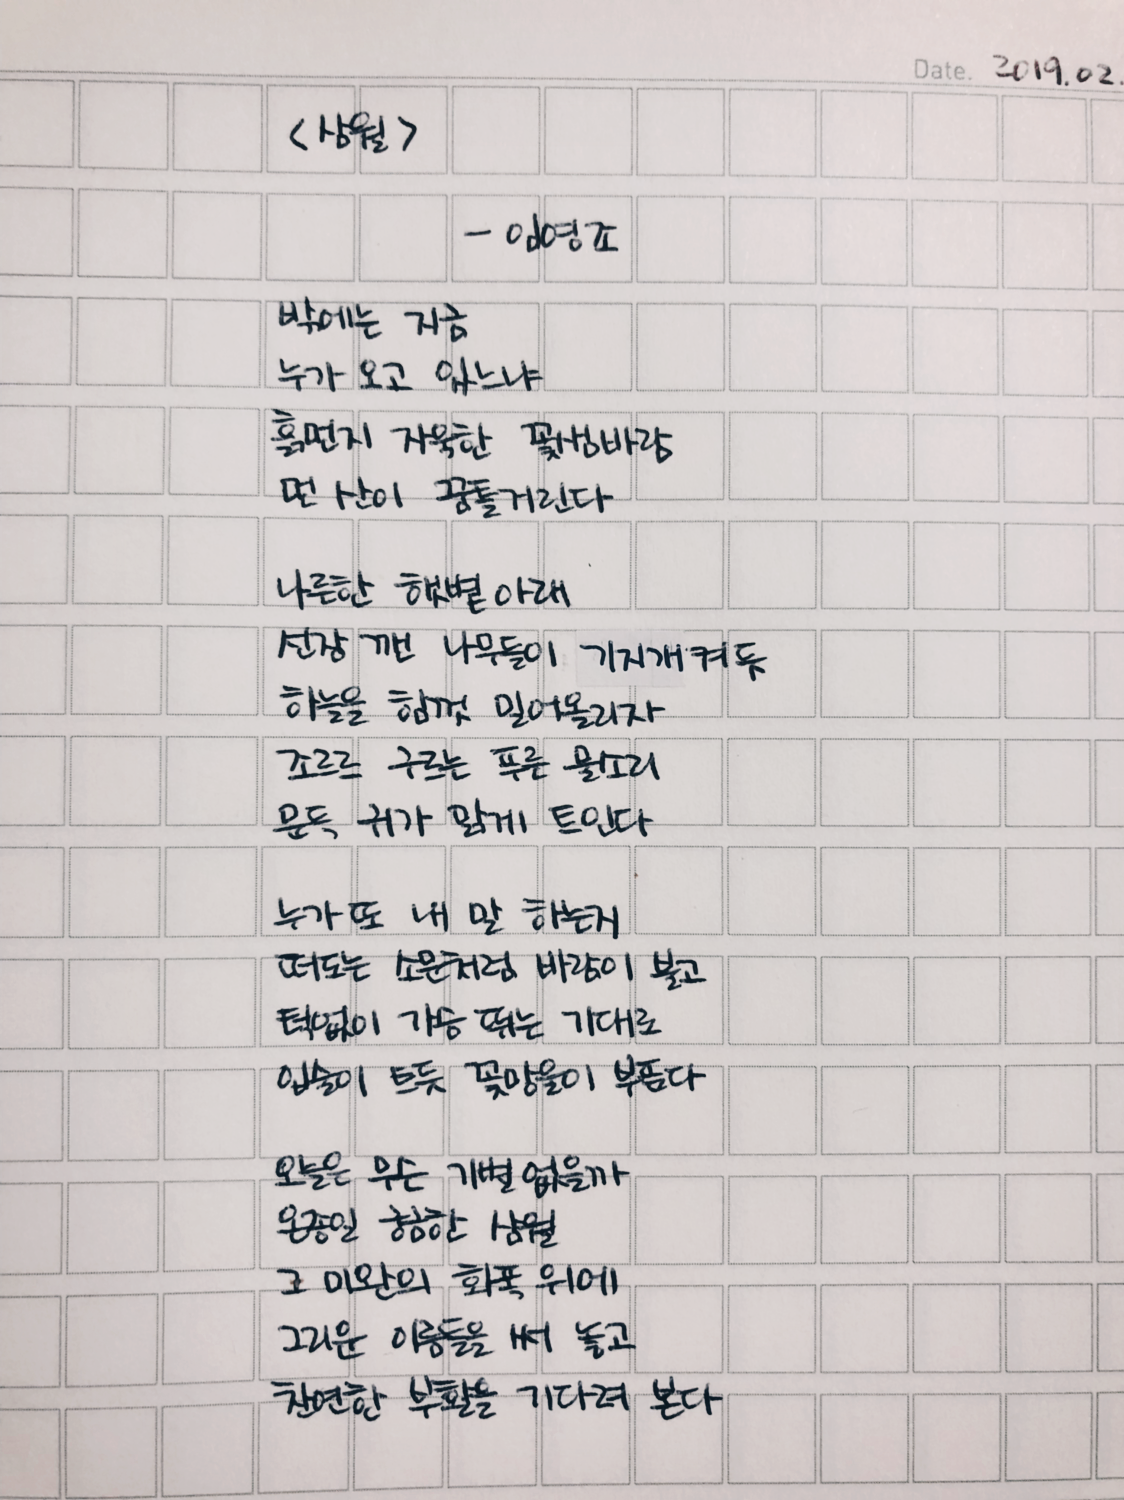 Date. 2019.02.
<삼월>
- 임영조
밖에는 지금
누가 오고 있느냐
흙먼지 자욱한 꽃샘바람
먼 산이 꿈틀거린다
나른한 햇볕 아래
선잠 깬 나무들이 기지개켜듯
하늘을 힘껏 밀어올리자
조르르 구르는 푸른 물소리
문득 귀가 맑게 트인다
누가 또 내 말 하는지
떠도는 소문처럼 바람이 불고
턱없이 가슴 뛰는 기대로
입술이 트듯 꽃망울이 부푼다
오늘은 무슨 기별 없을까
온종일 궁금한 삼월
그 미완의 화폭 위에
그리운 이름들을 써 놓고
찬연한 부활을 기다려 본다